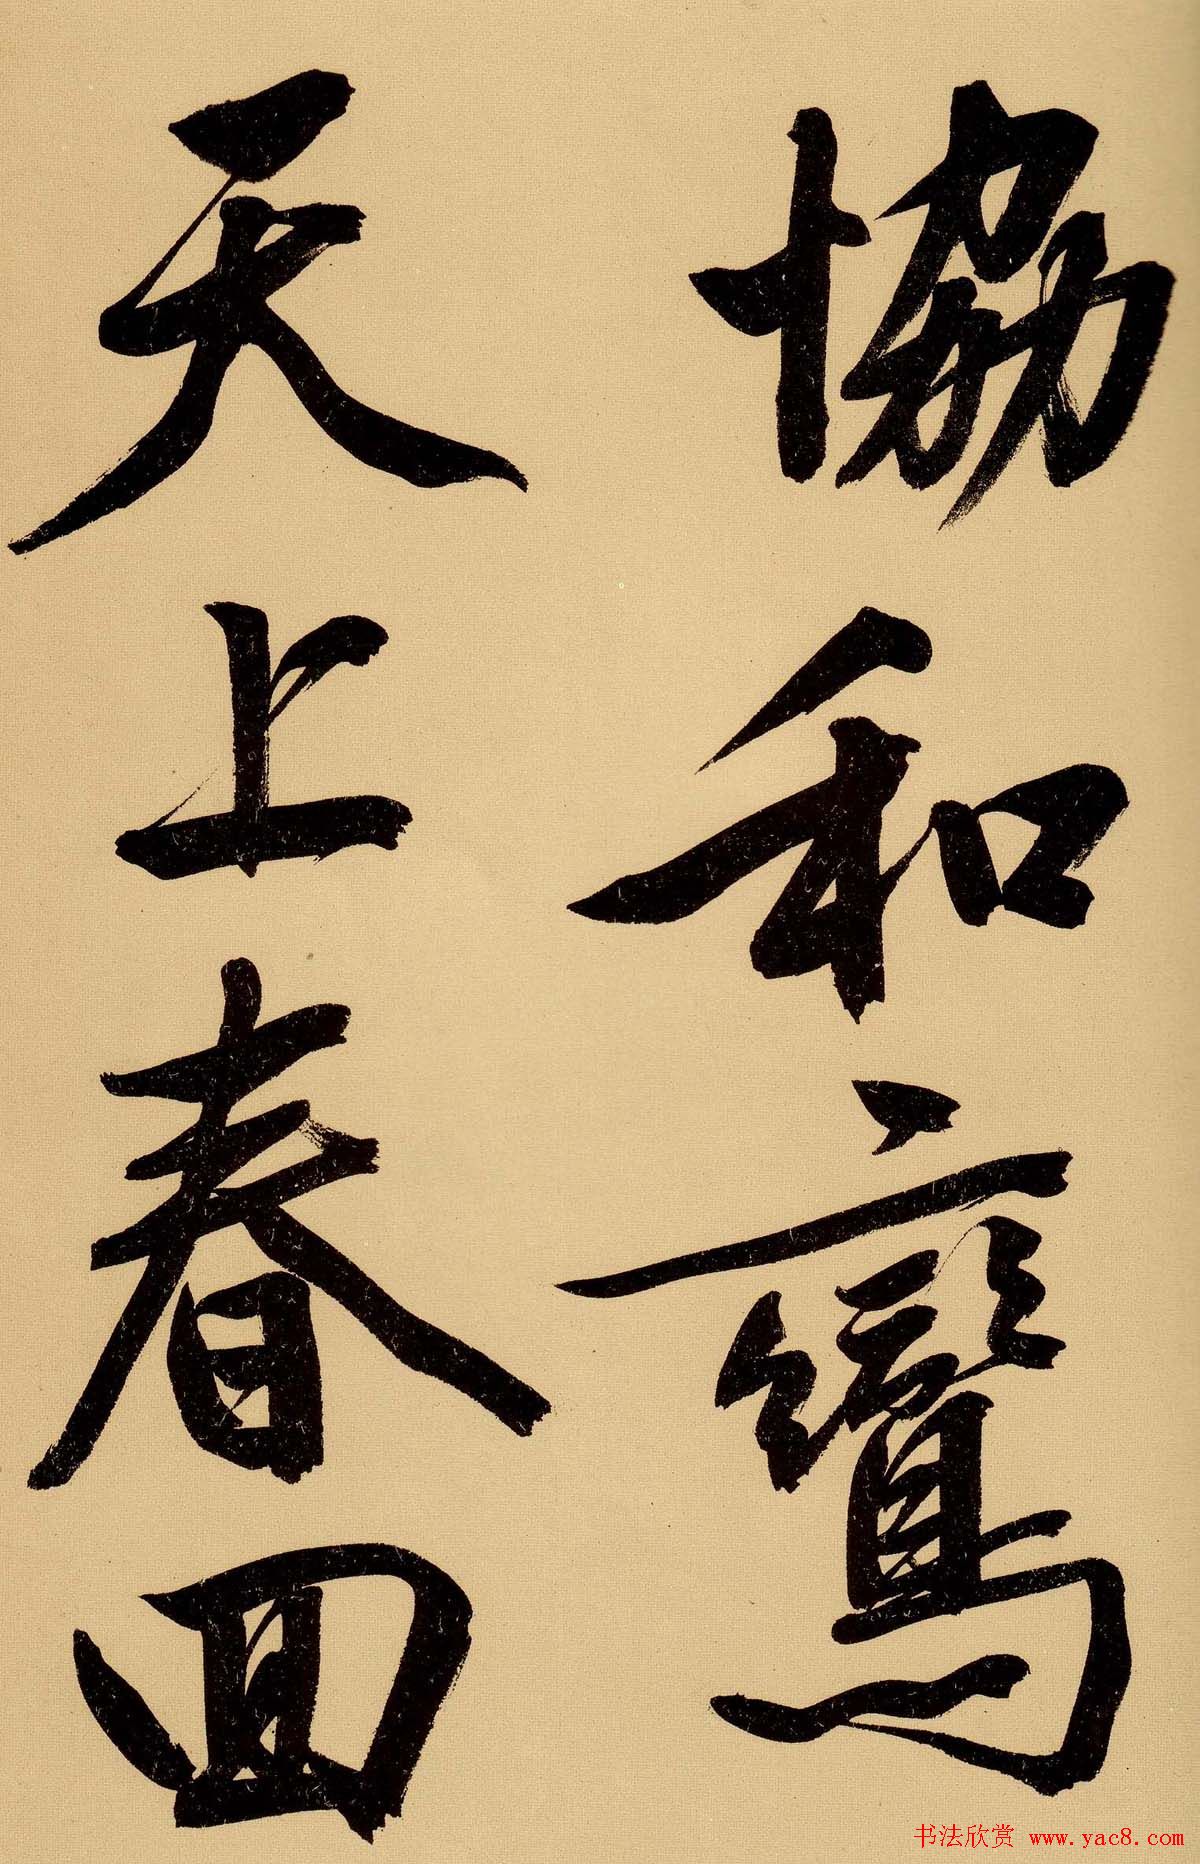 協和鸞
天上春回
书法欣赏 www.yac8.com